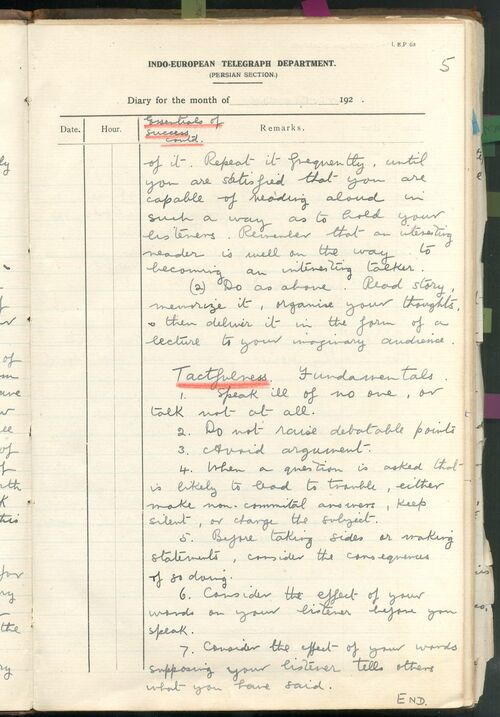 I. E.P 68
5
INDO-EUROPEAN TELEGRAPH DEPARTMENT.
(PERSIAN SECTION.)
Diary for the month of 192 .
Date. Hour. Remarks.
Essentials of
Success
contd.
of it. Repeat it frequently, until
you are satisfied that you are
capable of reading aloud in
such a way as to hold your
listeners. Remember that an interesting
reader is well on the way to
becoming an interesting talker.
(2) Do as above. Read story,
memorize it, organise your thoughts,
& then deliver it in the form of a
lecture to your imaginary audience.
Tactfulness. Fundamentals.
1. Speak ill of no one, or
talk not at all.
2. Do not raise debatable points
3. Avoid argument.
4. When a question is asked that
is likely to lead to trouble, either
make non-commital answers, keep
silent, or change the subject.
5. Before taking sides or making
statements, consider the consequences
of so doing.
6. Consider the effect of your
words on your listener before you
speak.
7. Consider the effect of your words
supposing your listener tells others
what you have said.
END.